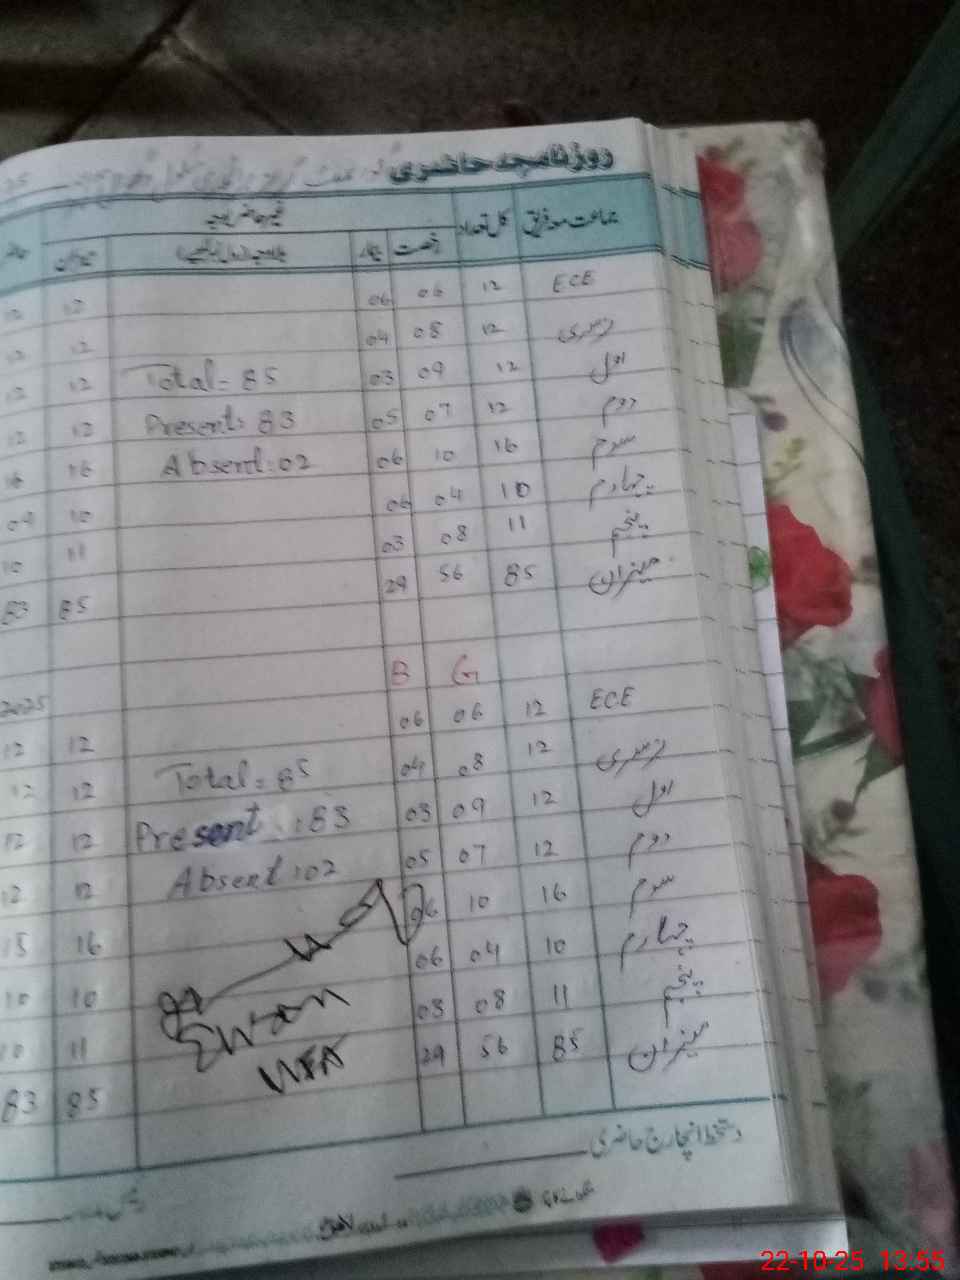 روزنامچہ حاضری
جماعت مع فریق کل تعداد رخصت بیمار غیر حاضر طلبہ میزان
ECE 12 06 06 12 12
نرسری 12 08 04 12 12
اول 12 09 03 Total = 85 12 12
دوم 12 07 05 Present: 83 12 12
سوم 16 10 06 Absend: 02 16 16
چہارم 10 04 06 10 09
پنجم 11 08 03 11 10
میزان 85 56 29 85 83
G B
ECE 12 06 06 2025
نرسری 12 08 04 12 12
اول 12 09 03 Total = 85 12 12
دوم 12 07 05 Present: 83 12 12
سوم 16 10 06 Absent: 02 12 12
چہارم 10 04 06 16 15
پنجم 11 08 03 10 10
میزان 85 56 29 11 10
85 83
دستخط انچارج حاضری
22-10-25 13:55